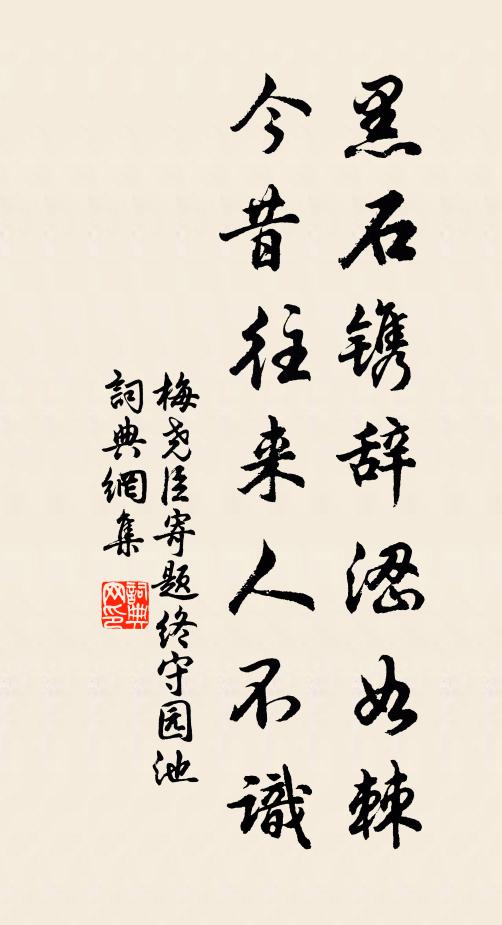 黑石镌辞涩如棘
今昔往来人不識
梅尧臣寄题绛守园池
詞典網集
詞典网印